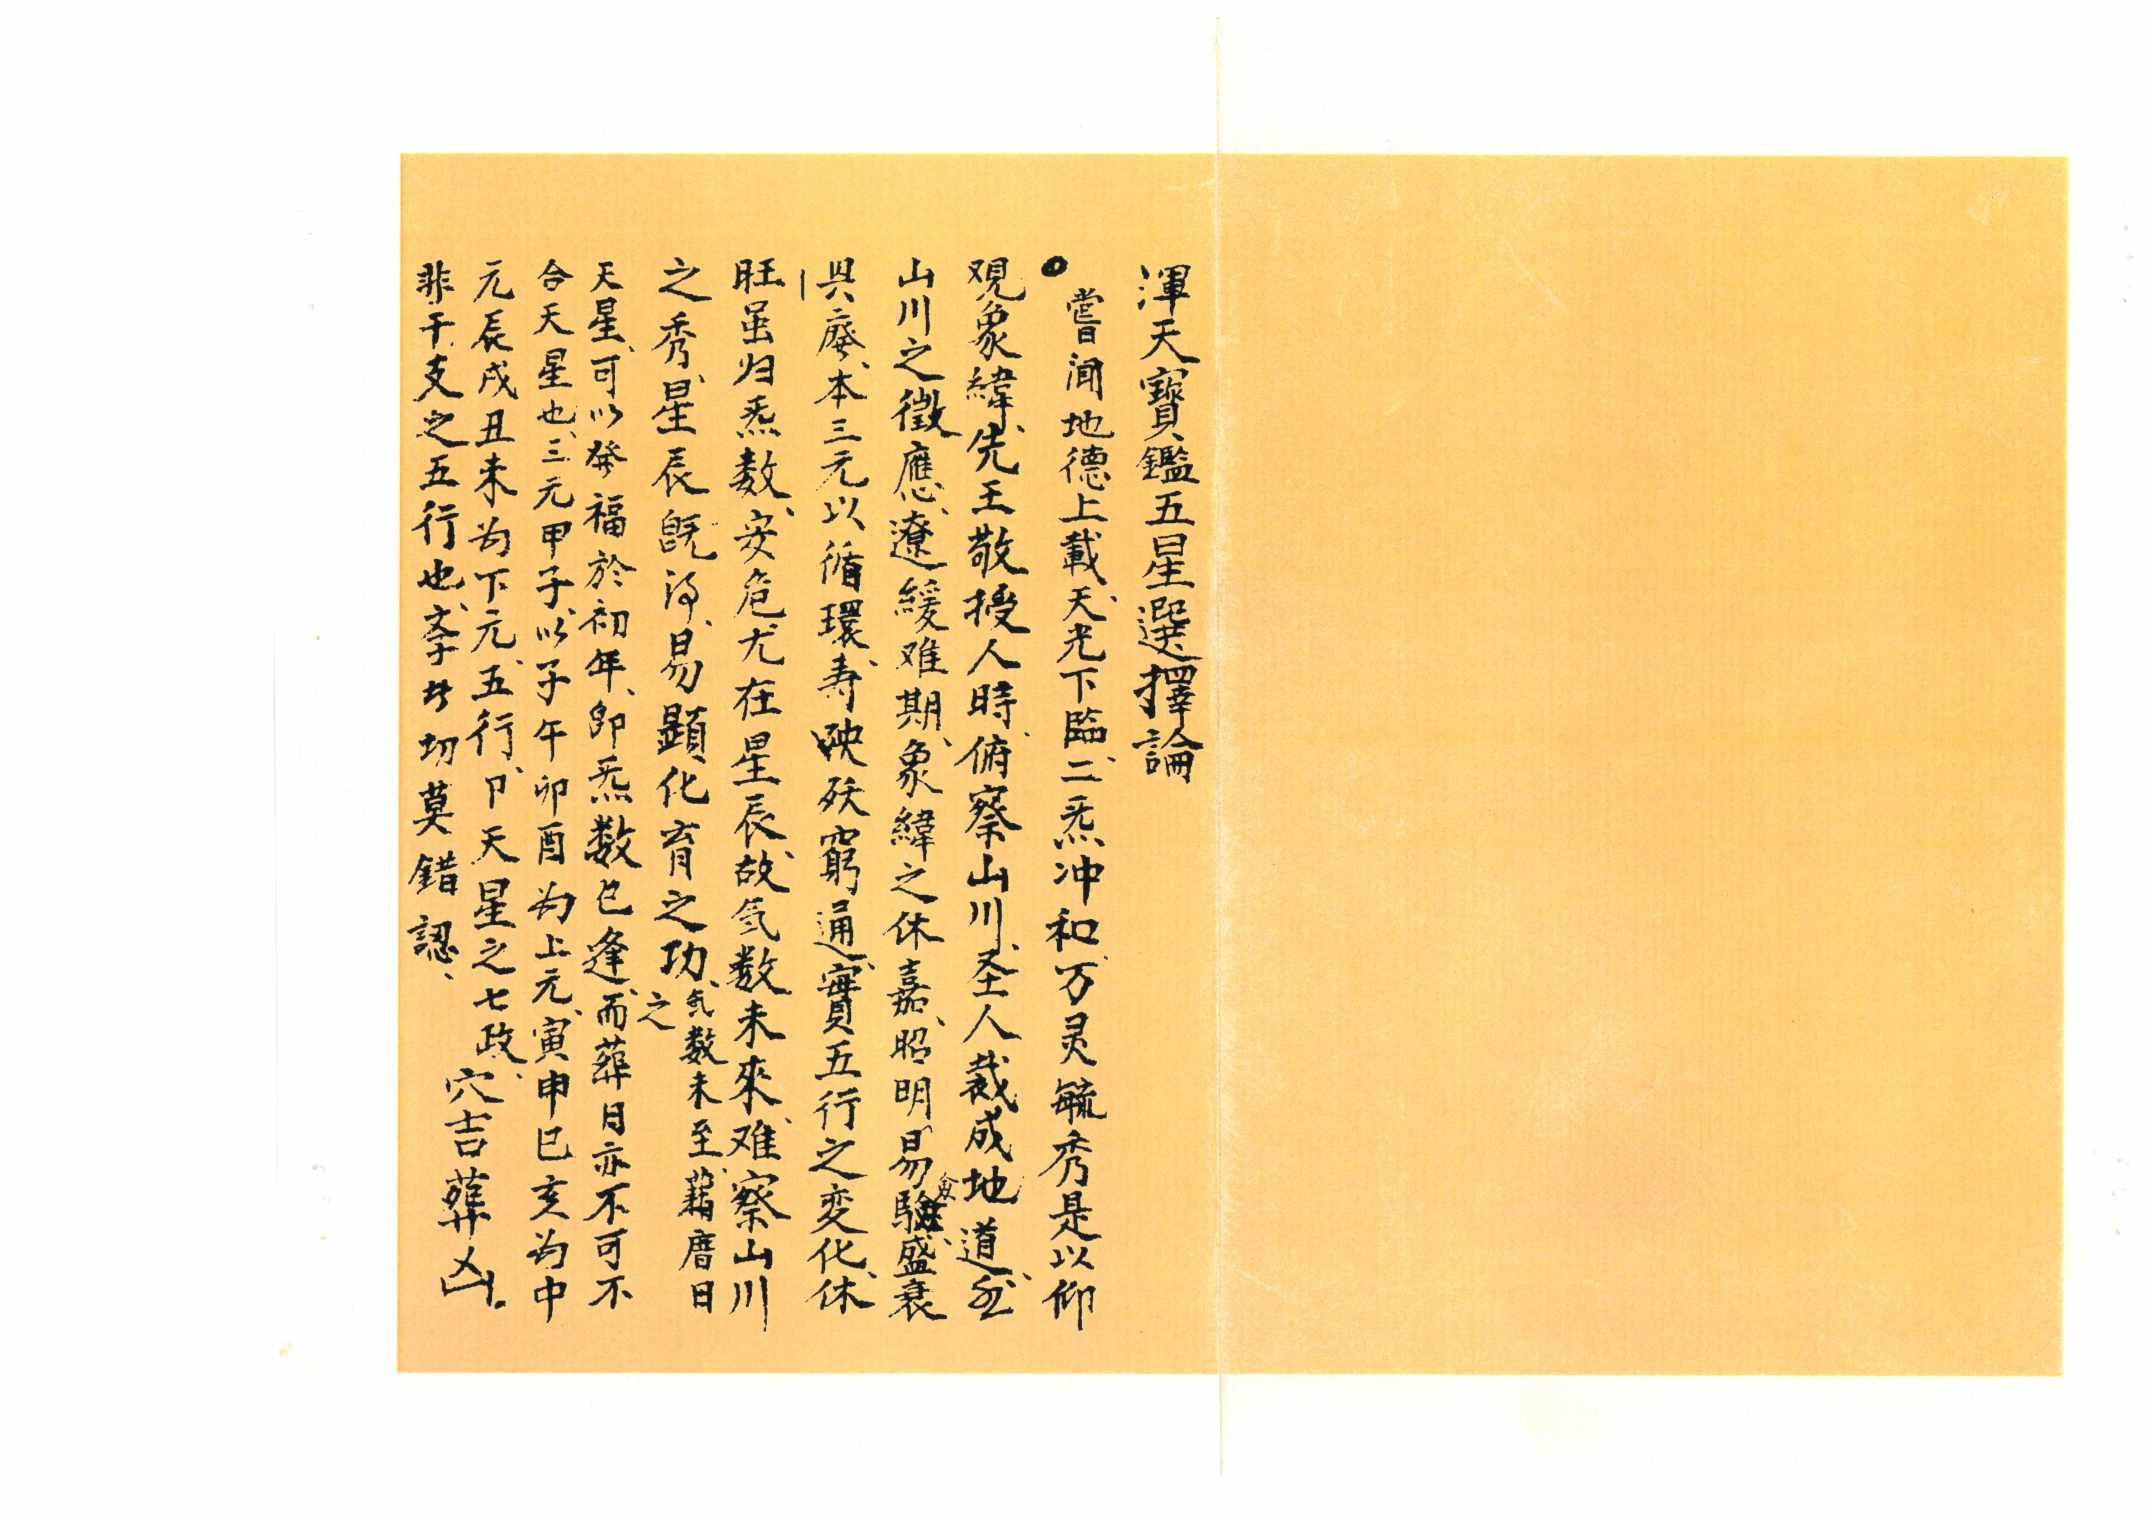 渾天寶鑑五星選擇論
嘗闻地德上載天光下臨二炁冲和万灵毓秀是以仰
观象緯先王敬授人時俯察山川圣人裁成地道
山川之徵應遼緩难期象緯之休嘉昭明易驗盛衰
廢本三元以循環寿殀窮通實五行之変化休
旺虽归炁数安危尤在星辰故氣数未來难察山川
之秀星辰既得易顯化育之功氣数未至藉曆日之
天星可以發福於初年即炁数已逢而葬日亦不可不
合天星也三元甲子以子午卯酉为上元寅申巳亥为中
元辰戌丑未为下元五行卩天星之七政穴吉葬凶
非干支之五行也学者切莫錯認